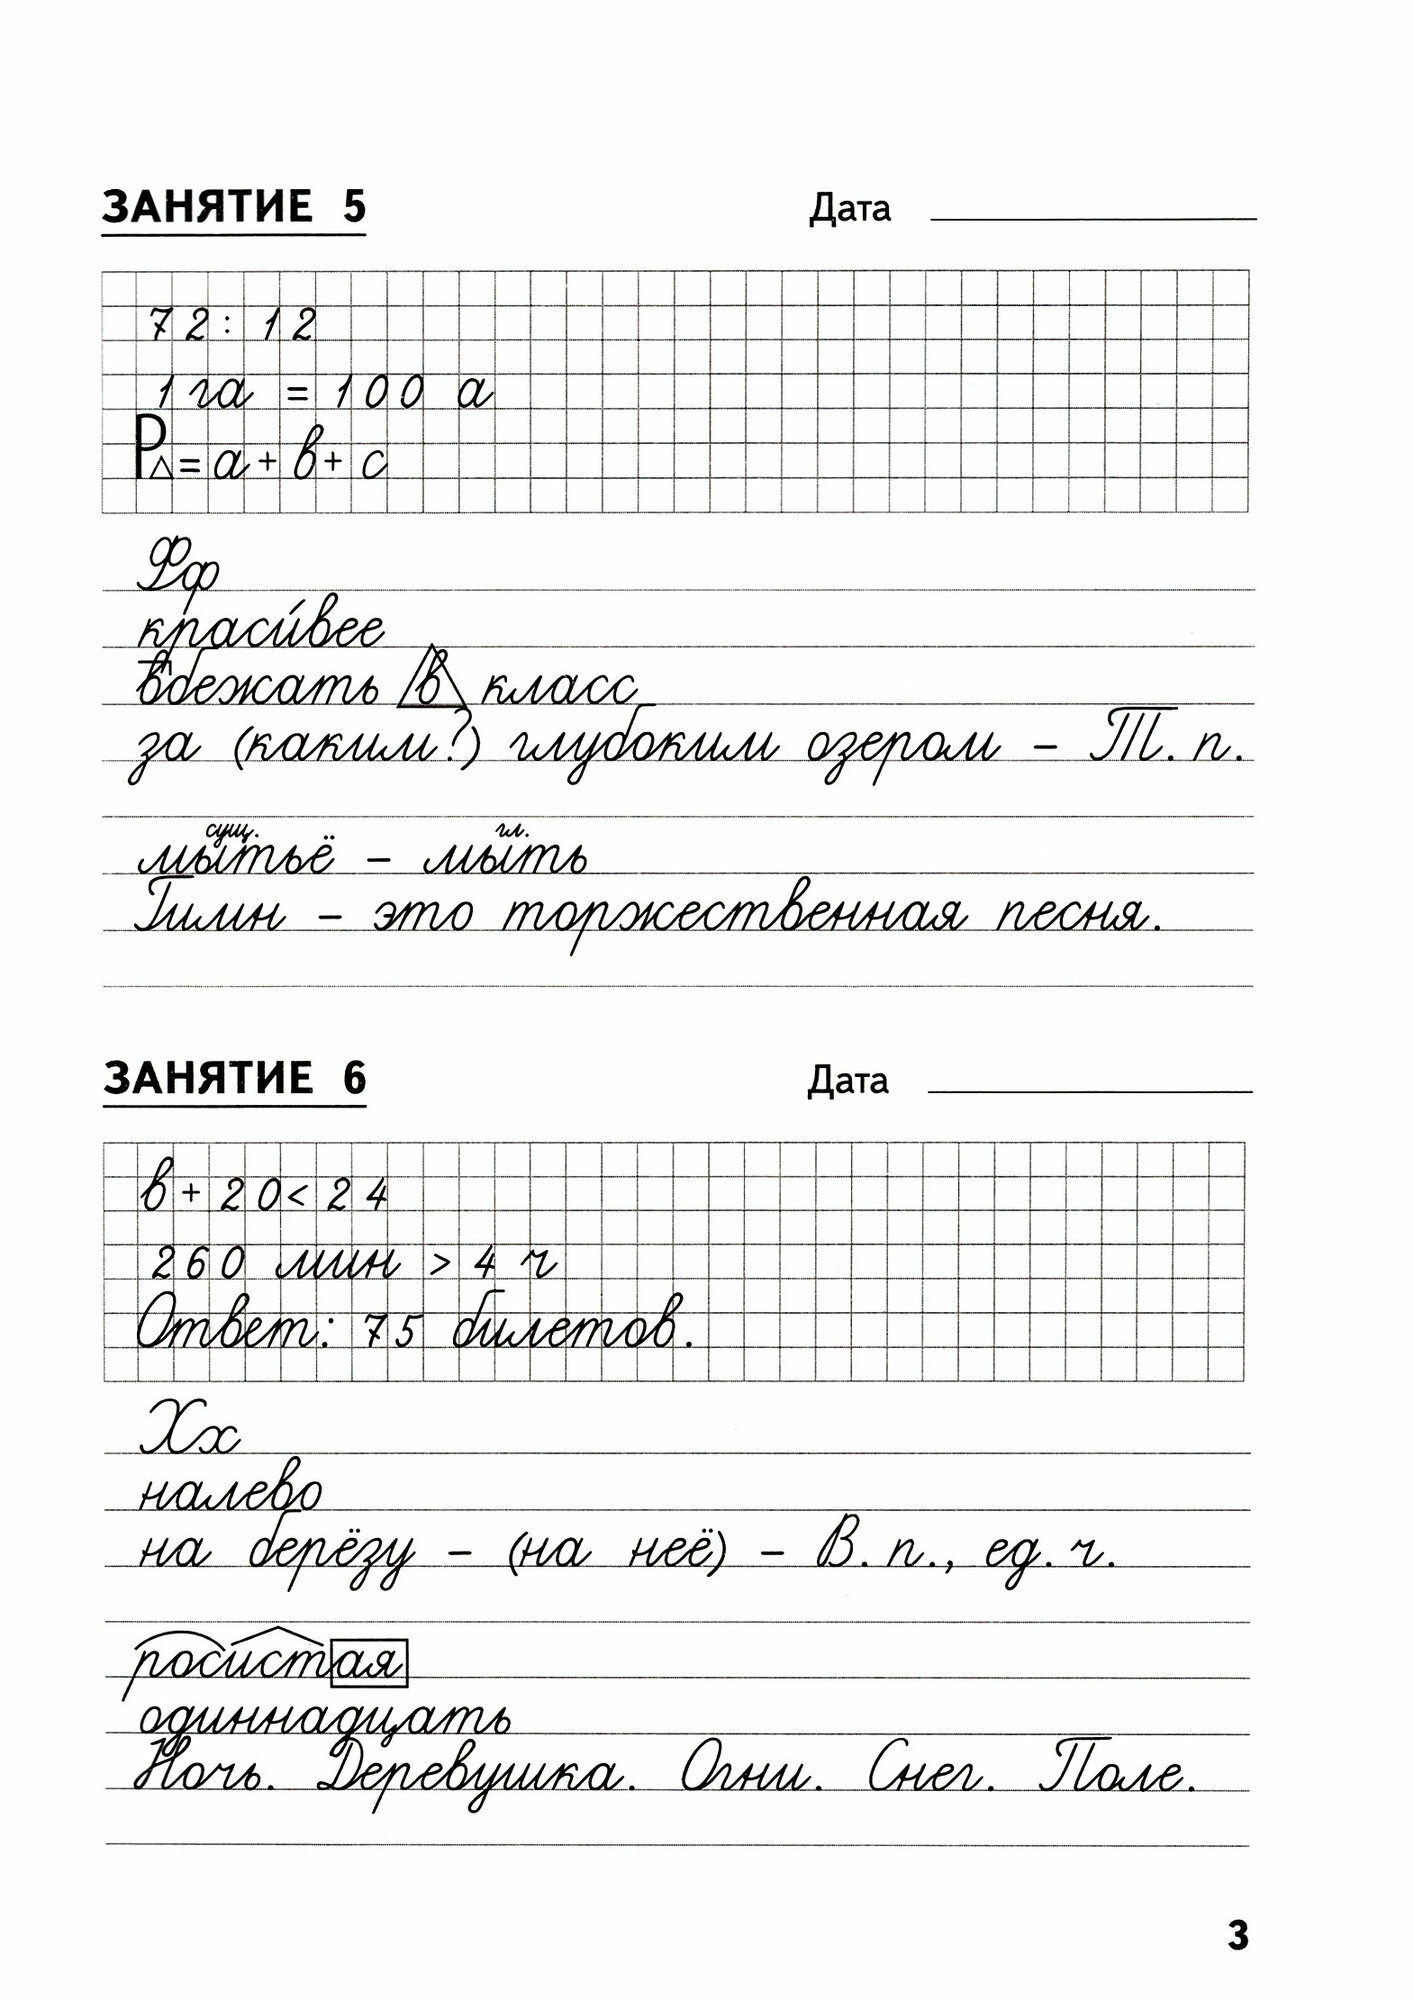 ЗАНЯТИЕ 5 Дата
72 : 12
1 га = 100 а
P△ = а + в + с
Фф
краси́вее
вбежать в класс
за (каким?) глубоким озером – Т. п.
сущ. гл.
мытьё – мыть
Гимн – это торжественная песня.
ЗАНЯТИЕ 6 Дата
в + 20 < 24
260 мин > 4 ч
Ответ: 75 билетов.
Хх
налево
на берёзу – (на неё) – В. п., ед. ч.
росистая
одиннадцать
Ночь. Деревушка. Огни. Снег. Поле.
3